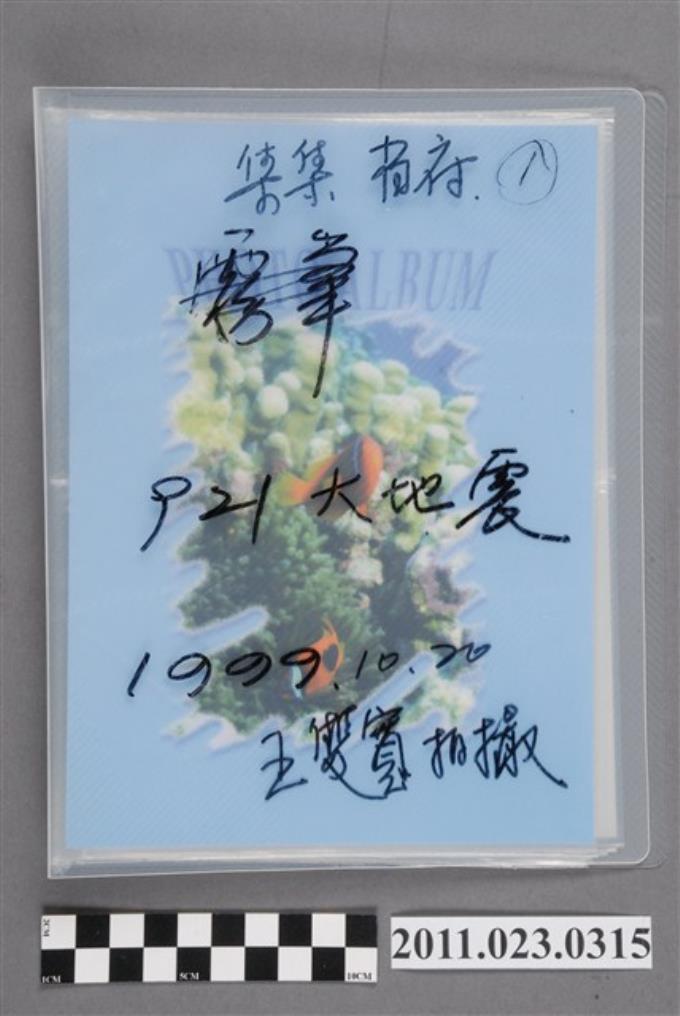 集集 省府. ①
PHOTO ALBUM
霧峯
921 大地震
1999.10.20
王雙寶拍攝
2CM
1CM 5CM 10CM
2011.023.0315